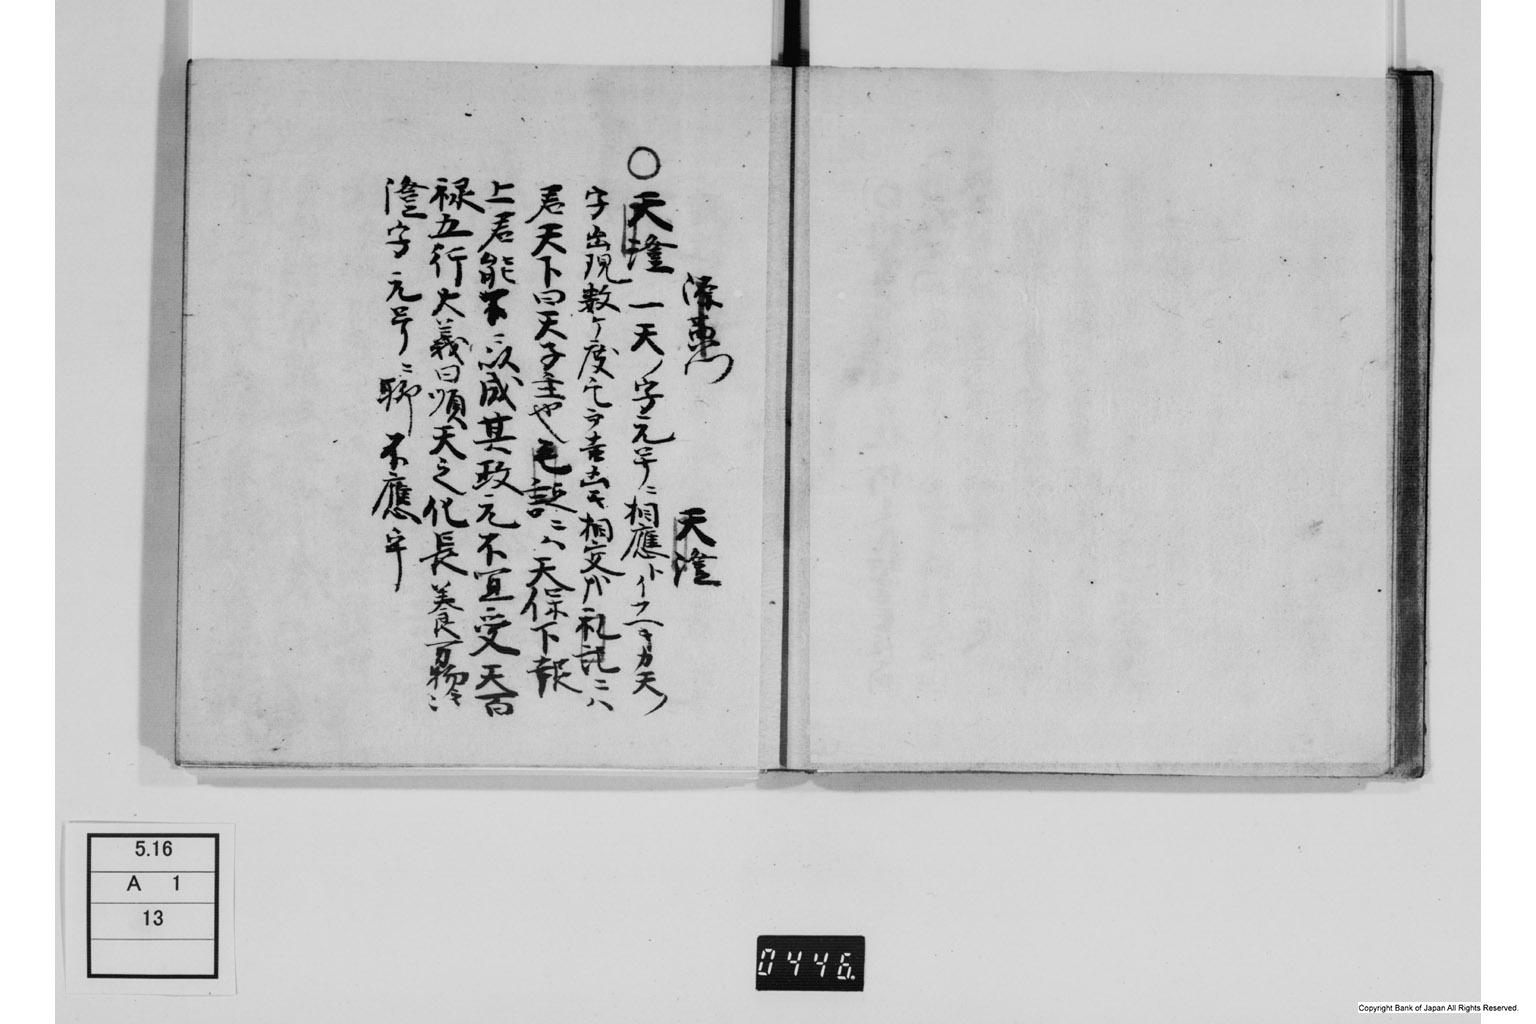 深南門
天澄
○天澄 一天ノ字元号ニ相應ト イフヘキカ天ノ
字出現数ケ度ニ 吉凶 相交 カ礼記ニハ
君天下曰天子主也毛詩ニハ天保下報
上君能下以成其政元不宜受天百
禄五行大義曰順天之化長養万物
澄字元号ニ聊不應乎
5.16
A 1
13
0446.
Copyright Bank of Japan All Rights Reserved.